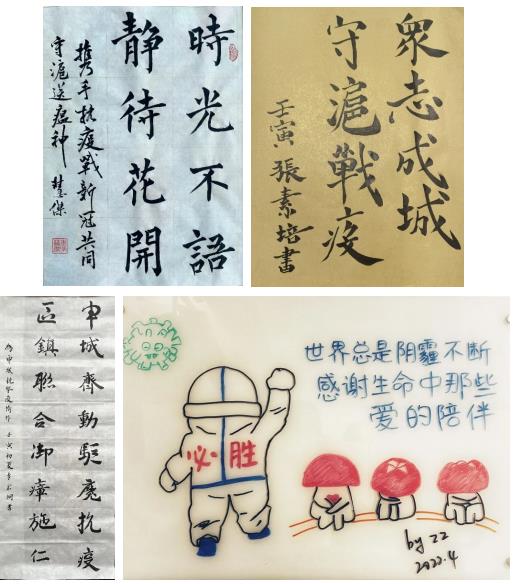 時光不語
静待花開
携手抗疫戰新冠共同
守滬送瘟神 慧傑
衆志成城
守滬戰疫
壬寅 張素培書
申城齊動駆魔抗疫
區鎮聯合御瘴施仁
必胜
世界总是阴霾不断
感谢生命中那些
爱的陪伴
by zz
2022.4